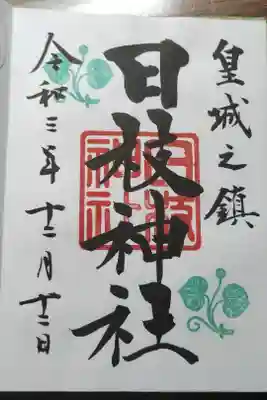 皇城之鎮
日枝神社
日枝神社
令和三年十二月十二日